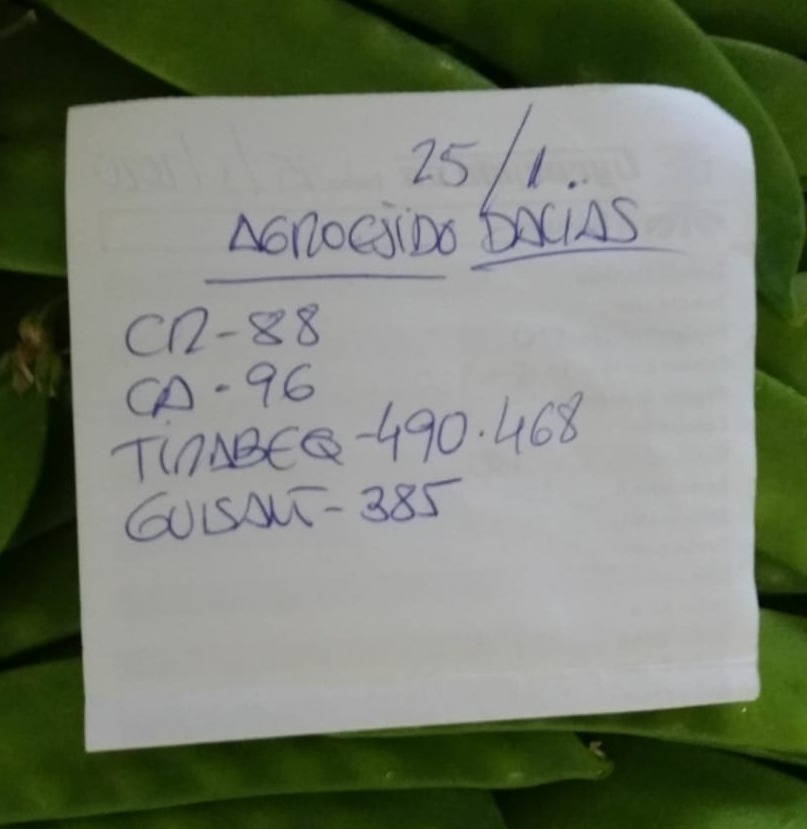 25/1..
AGROEJIDO DACIAS
CR-88
CA-96
TIRABEQ-490.468
GUISANT-385